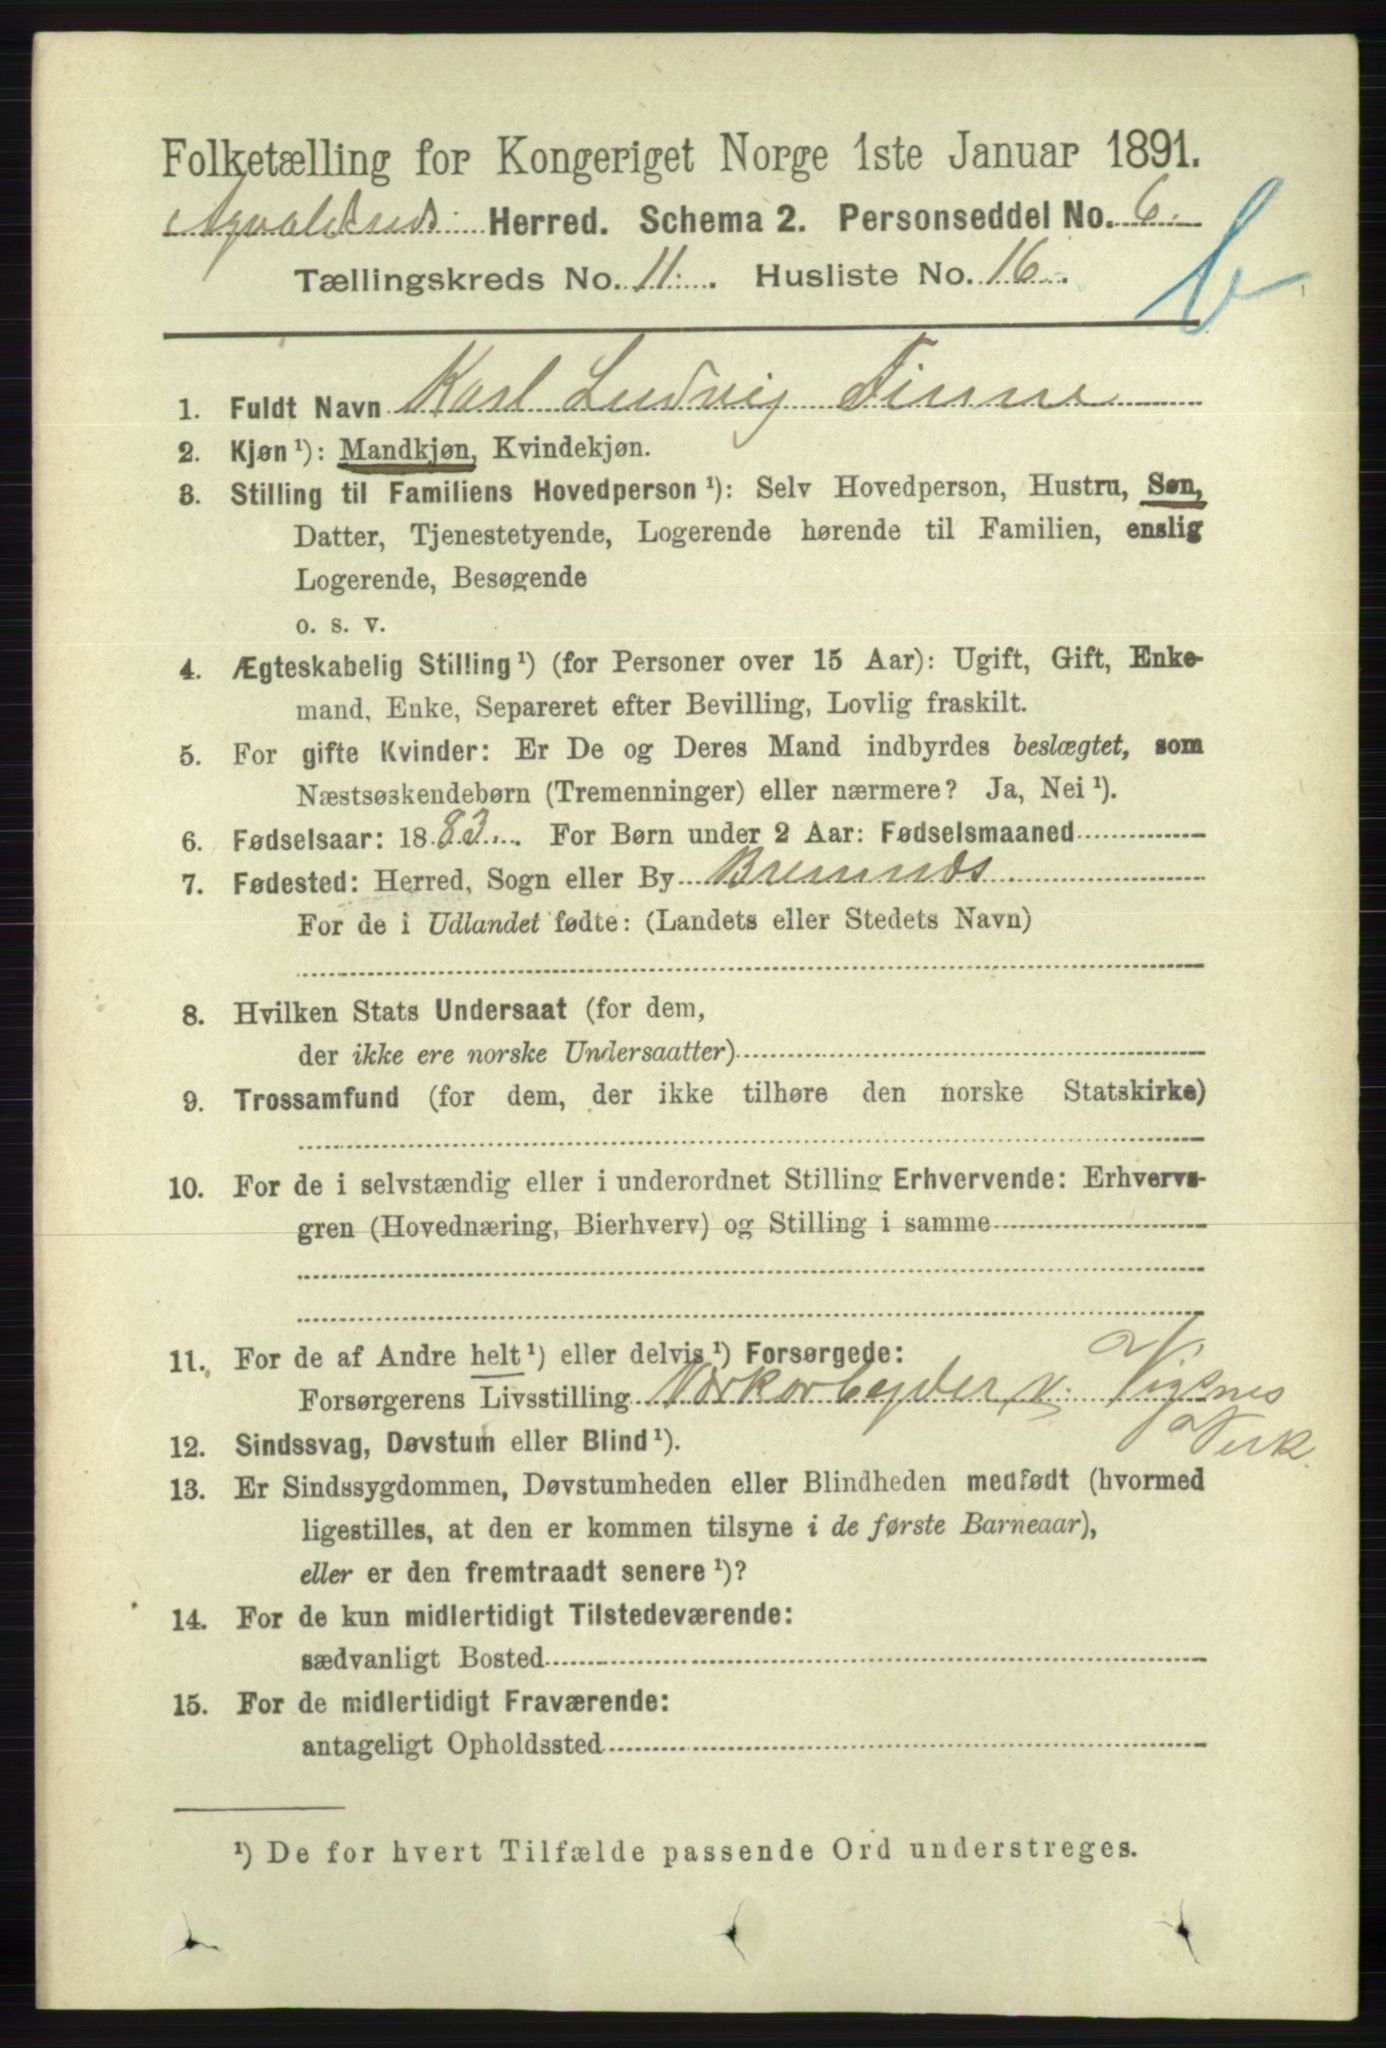 Folketælling for Kongeriget Norge 1ste Januar 1891.
Herred. Schema 2. Personseddel No. 6.
Tællingskreds No. 11. Husliste No. 16.
1. Fuldt Navn Karl Ludvig Finne
2. Kjøn ¹): Mandkjøn, Kvindekjøn.
3. Stilling til Familiens Hovedperson ¹): Selv Hovedperson, Hustru, Søn,
Datter, Tjenestetyende, Logerende hørende til Familien, enslig
Logerende, Besøgende
o. s. v.
4. Ægteskabelig Stilling ¹) (for Personer over 15 Aar): Ugift, Gift, Enke-
mand, Enke, Separeret efter Bevilling, Lovlig fraskilt.
5. For gifte Kvinder: Er De og Deres Mand indbyrdes beslægtet, som
Næstsøskendebørn (Tremenninger) eller nærmere? Ja, Nei ¹).
6. Fødselsaar: 1883. For Børn under 2 Aar: Fødselsmaaned
7. Fødested: Herred, Sogn eller By Bremnæs
For de i Udlandet fødte: (Landets eller Stedets Navn)
8. Hvilken Stats Undersaat (for dem,
der ikke ere norske Undersaatter)
9. Trossamfund (for dem, der ikke tilhøre den norske Statskirke)
10. For de i selvstændig eller i underordnet Stilling Erhvervende: Erhvervs-
gren (Hovednæring, Bierhverv) og Stilling i samme
11. For de af Andre helt ¹) eller delvis ¹) Forsørgede:
Forsørgerens Livsstilling Værkarbeyder v. Vigsnes
Verk.
12. Sindssvag, Døvstum eller Blind ¹).
13. Er Sindssygdommen, Døvstumheden eller Blindheden medfødt (hvormed
ligestilles, at den er kommen tilsyne i de første Barneaar),
eller er den fremtraadt senere ¹)?
14. For de kun midlertidigt Tilstedeværende:
sædvanligt Bosted
15. For de midlertidigt Fraværende:
antageligt Opholdssted
¹) De for hvert Tilfælde passende Ord understreges.